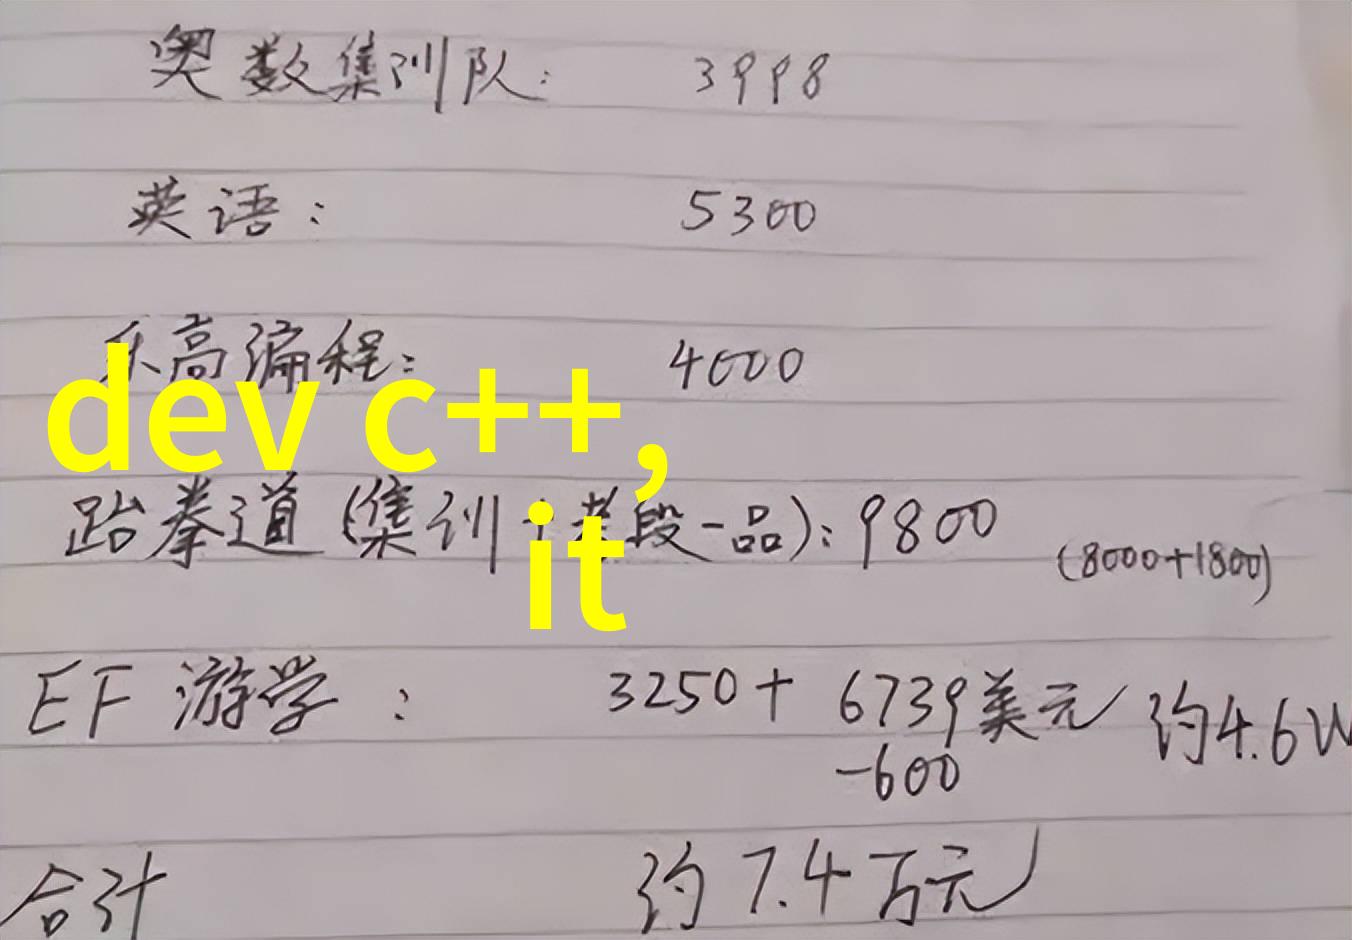 奥数集训队: 3998
英语: 5300
乐高编程: 4000
dev c++,
跆拳道(集训+考段一品): 9800
(8000+1800)
it
EF 游学: 3250+ 6739美元 约4.6W
-600
合计 约7.4万元